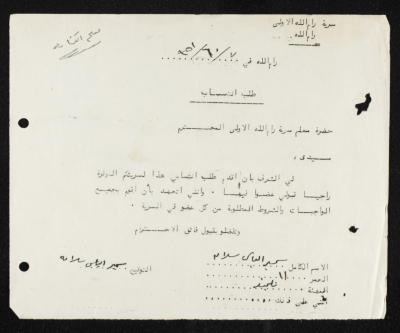 سرية رام الله الاولى
رام الله
معلم الكشافة
رام الله في ٧/١٠/٩٥١
طلب انتساب
حضرة معلم سرية رام الله الاولى المحترم
سيدي،
لي الشرف بان اقدم طلب انتسابي هذا لسريتكم الموقرة
راجيا قبولي عضوا فيها. وانني اتعهد بأن اقوم بجميع
الواجبات والشروط المطلوبة من كل عضو في السرية.
وتفضلوا بقبول فائق الاحترام
الاسم الكامل سمير الياس سلامه
العمر ١١
المهنة تلميذ
التوقيع سمير الياس سلامه